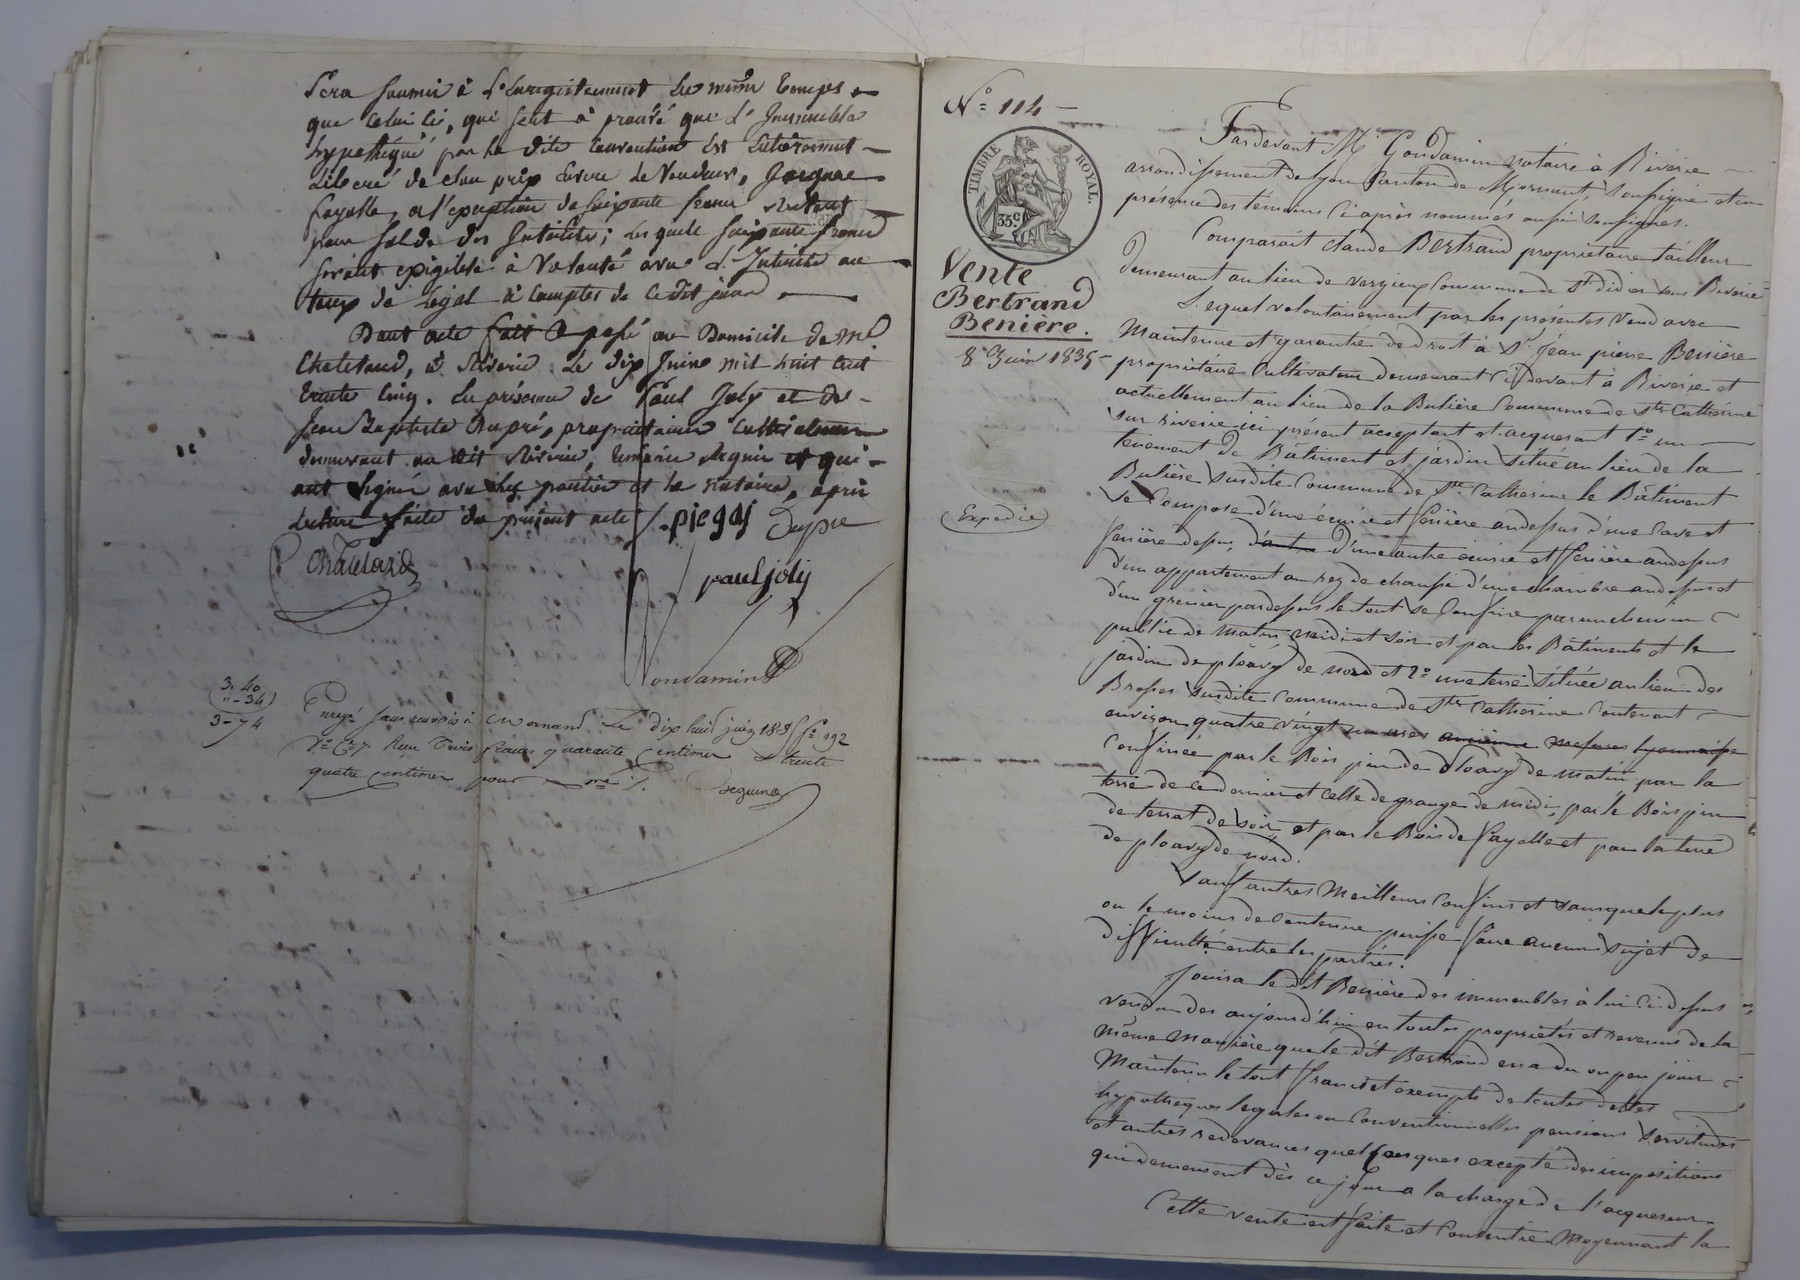 Sera soumis à l'enregistrement en même temps
que celui ci, qui sert à prouvé que l'Immeuble
hypothéqué par la dite convention est entièrement
libéré de son prix envers le Vendeur, Jacques
fayolle, à l'exception de soixante francs restant
pour solde des Intérêts; lesquels soixante francs
seront exigibles à Volonté avec l'Intérêts au
taux de légal à compter de cedit jour
Dont acte fait & passé au Domicile de Me
Chatelard, à Riverie. Le dix Juin mil huit cent
trente cinq. En présence de Paul Joly et de
Jean Baptiste Dupré, propriétaires cultivateurs
demeurant au dit Riverie, témoins requis et qui
ont signé avec les parties et le notaire, après
lecture faite du présent acte /. piegaj Dupré
Chatelard
paul joly
Gondamin
3. 40
"- 34
3 - 74
Enregé sans renvois à Mornand Le dix huit juin 1835 fo 192
Vo Ce 7. Reçu Trois francs quarante Centimes & trente
quatre Centimes pour /.
Seguin
No 114
TIMBRE ROYAL.
35c
Vente
Bertrand
Benière.
8 Juin 1835
Expédié
Pardevant Me Gondamin notaire à Riverie
arrondissement de Lyon Canton de Mornant, soussigné et en
présence des témoins Ci après nommés aussi soussignés.
Comparait Claude Bertrand propriétaire tailleur
demeurant au lieu de vergieux Commune de St didier sous Riverie
Lequel volontairement par les présentes vend avec
Maintenue et garantie de droit à Sr Jean pierre Benière
propriétaire Cultivateur demeurant Ci devant à Riverie et
actuellement au lieu de la Bulière Commune de Ste Catherine
sur riverie ici présent acceptant et acquerant 1o un
tènement de Bâtiment et jardin situé au lieu de la
Bulière susdite Commune de Ste Catherine le Bâtiment
se Compose d'une écurie et fenière audessus d'une Cave et
fenière dessus, d'autre d'une autre écurie et fenière audessus
d'un appartement au rez de chaussé d'une chambre audessus et
d'un grenier pardessus le tout se Confine par un chemin
public de Matin midi et soir et par les Bâtiments et le
jardin de ploavy de nord et 2o une terre située au lieu des
Brosses susdite Commune de Ste Catherine Contenant
environ quatre vingt mesures ancienne mesures lyonnaise
Confinée par le Bois pin de ploavy de matin par la
terre de ce dernier et celle de grange de midi, par le Bois pin
de terrat de soir et par le Bois de fayolle et par la terre
de ploavy de nord.
Sauf autres Meilleurs Confins et sans que le plus
ou le moins de Contenue puisse faire aucun sujet de
difficulté entre les parties.
Jouira le dit Benière des immeubles à lui Ci dessus
vendu des aujourd'hui en toutes propriétés et revenus de la
même manière que le dit Bertrand en a du ou peu jouir
Maintenu le tout franc et exempts de toutes dettes
hypothèques legales ou Conventionnelles pensions servitudes
et autres redevances quelconques excepté des impositions
qui demeurent dès ce jour a la charge de l'acquereur
Cette vente est faite et Consentie Moyennant la